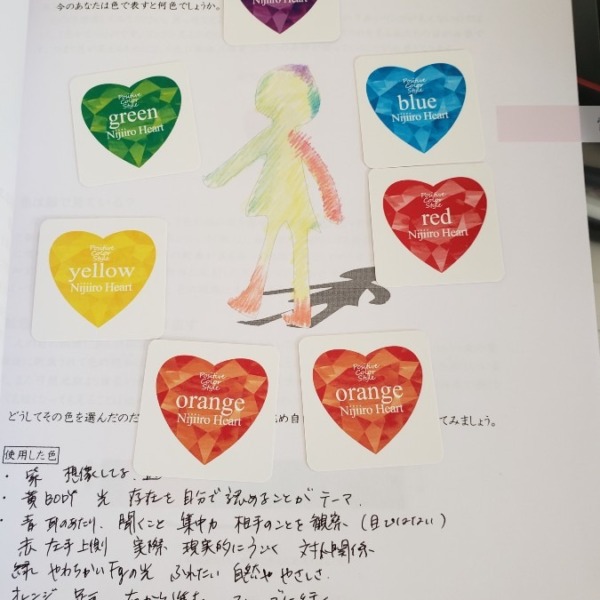 今のあなたは色で表すと何色でしょうか。
Nijiiro Heart
Positive
Color
Style
green
Nijiiro Heart
Positive
Color
Style
blue
Nijiiro Heart
Positive
Color
Style
red
Nijiiro Heart
Positive
Color
Style
yellow
Nijiiro Heart
Positive
Color
Style
orange
Nijiiro Heart
Positive
Color
Style
orange
Nijiiro Heart
どうしてその色を選んだのだ め自 てみましょう。
使用した色
・紫 想像してる
・黄BODY 光 存在を自分で認めることがテーマ
・青 耳のあたり、聞くこと 集中力 相手のことを観察、
赤 左手上側 実際 現実的にうごく 対人関係
緑 やわらかい の光 ふれたい 自然や やさしさ
オレンジ